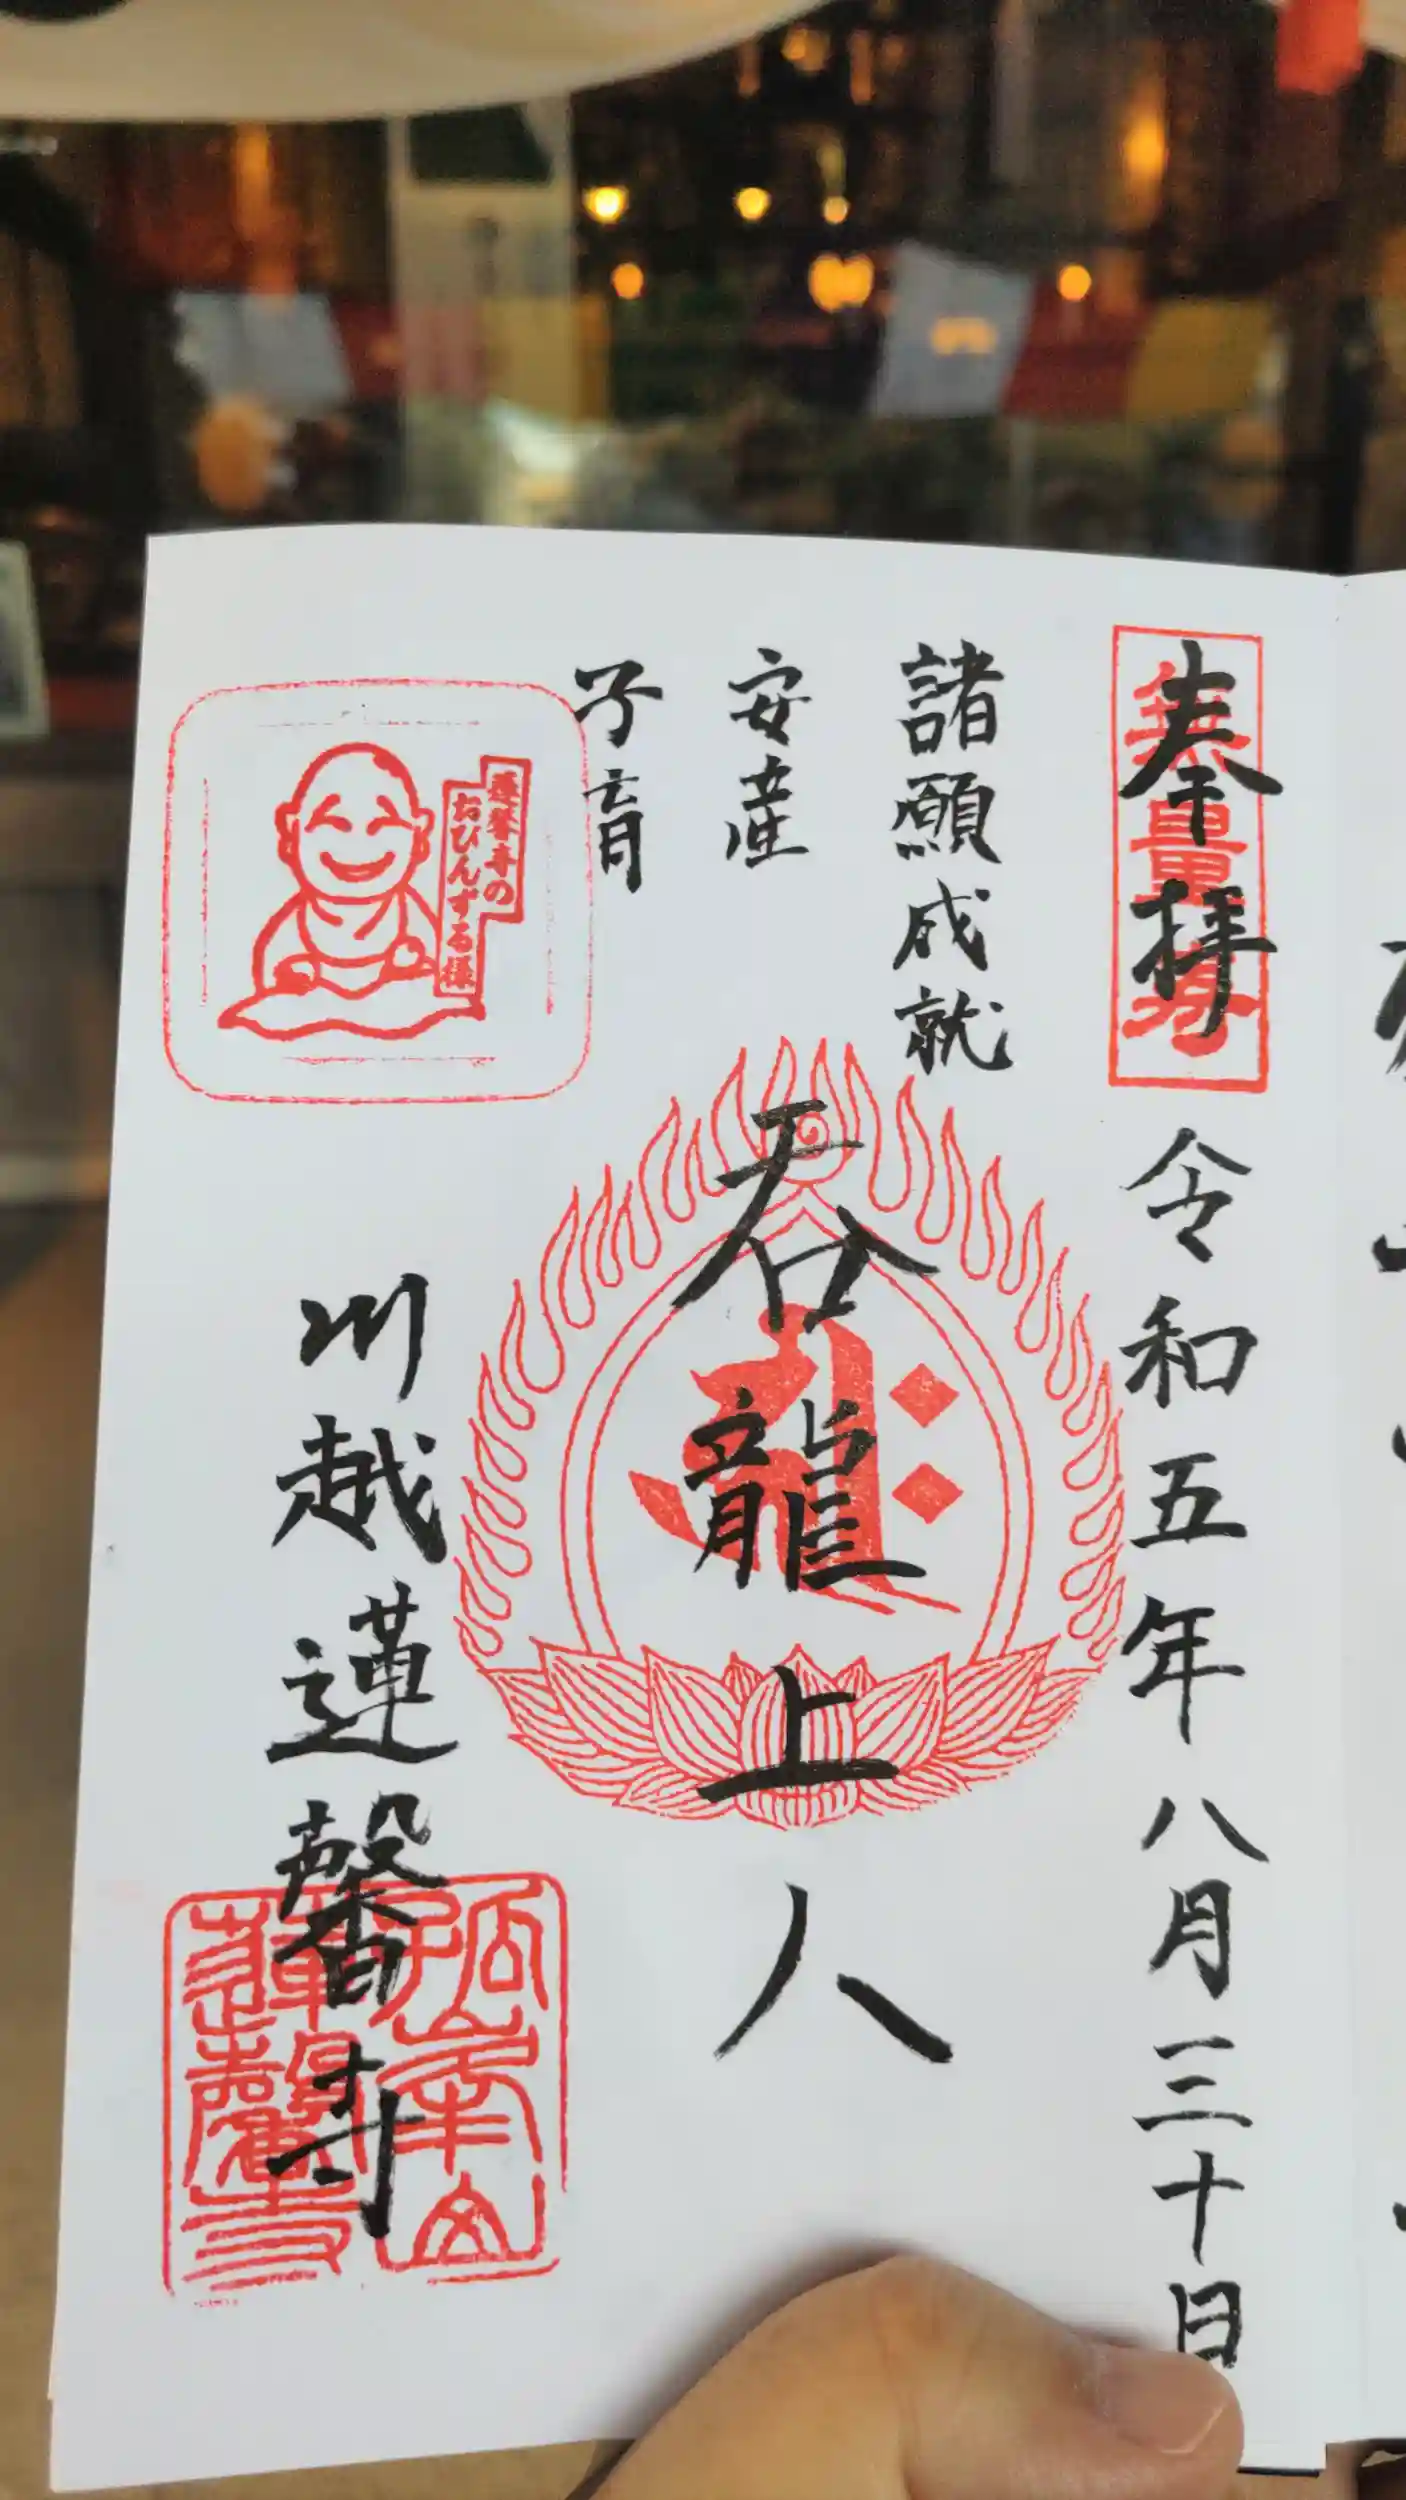 奉拝
無量壽
令和五年八月三十日
諸願成就
安産
子育
呑龍上人
蓮馨寺の
おびんずる様
川越蓮馨寺
孤峯山
蓮馨寺